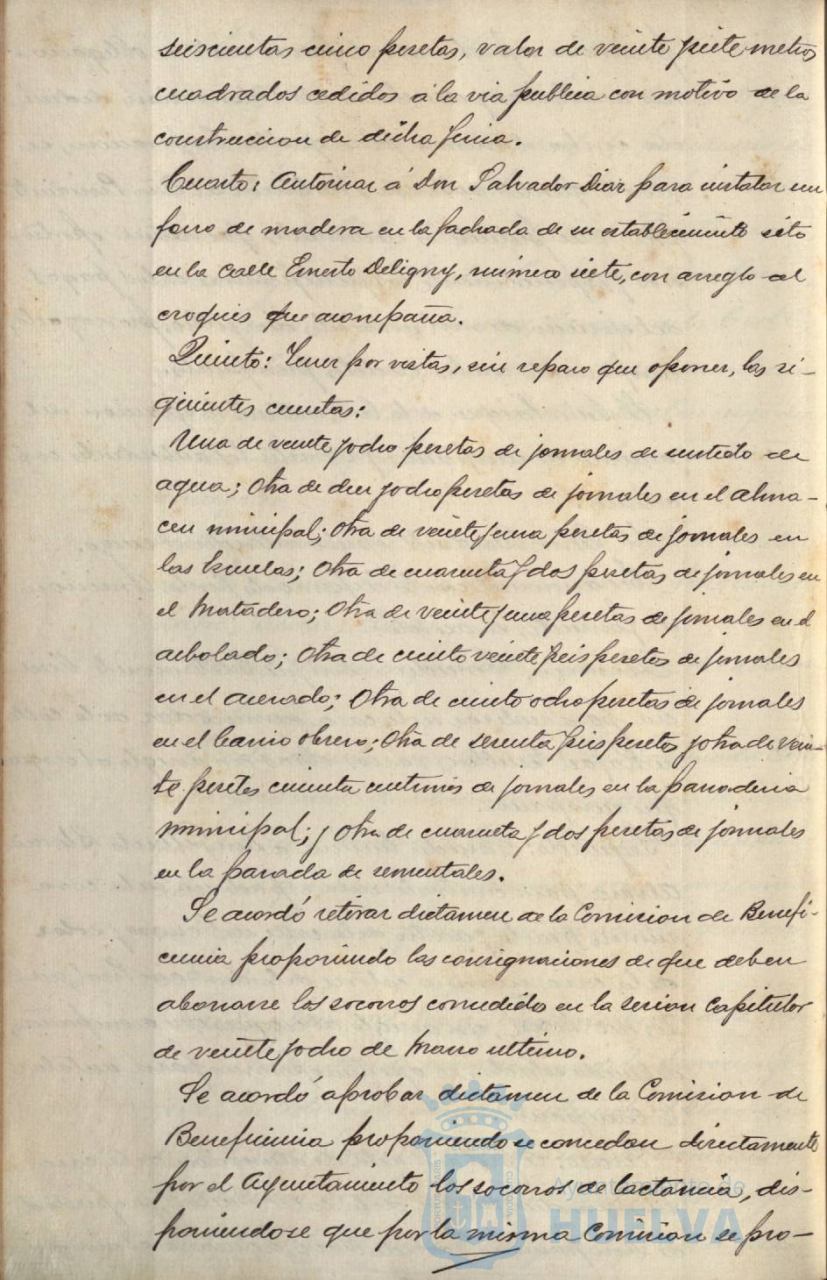 seiscientas cinco pesetas, valor de veinte y siete metros
cuadrados cedidos á la via publica con motivo de la
construccion de dicha finca.
Cuarto: Autorizar á Don Salvador Diaz para instalar un
forro de madera en la fachada de su establecimiento sito
en la calle Ernesto Deligny, número siete, con arreglo al
croquis que acompaña.
Quinto: Tener por vistas, sin reparo que oponer, las si-
guientes cuentas:
Una de veinte y ocho pesetas de jornales de surtido de
agua; Otra de diez y ocho pesetas de jornales en el Alma-
cen municipal; Otra de veinte y una pesetas de jornales en
las Escuelas; Otra de cuarenta y dos pesetas de jornales en
el Matadero; Otra de veinte y una pesetas de jornales en el
arbolado; Otra de ciento veinte y seis pesetas de jornales
en el acerado; Otra de ciento ocho pesetas de jornales
en el barrio obrero; Otra de sesenta y seis pesetas y otra de vein-
te pesetas cincuenta centimos de jornales en la panaderia
municipal; y Otra de cuarenta y dos pesetas de jornales
en la parada de sementales.
Se acordó retirar dictamen de la Comision de Benefi-
cencia proponiendo las consignaciones de que deben
abonarse los socorros concedidos en la sesion Capitular
de veinte y ocho de Marzo ultimo.
Se acordó aprobar dictamen de la Comision de
Beneficencia proponiendo se concedan directamente
por el Ayuntamiento los socorros de lactancia, dis-
poniendose que por la misma Comision se pro-
Ayuntamiento de
HUELVA